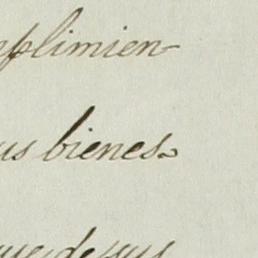 mplimien-
us bienes
que de sus